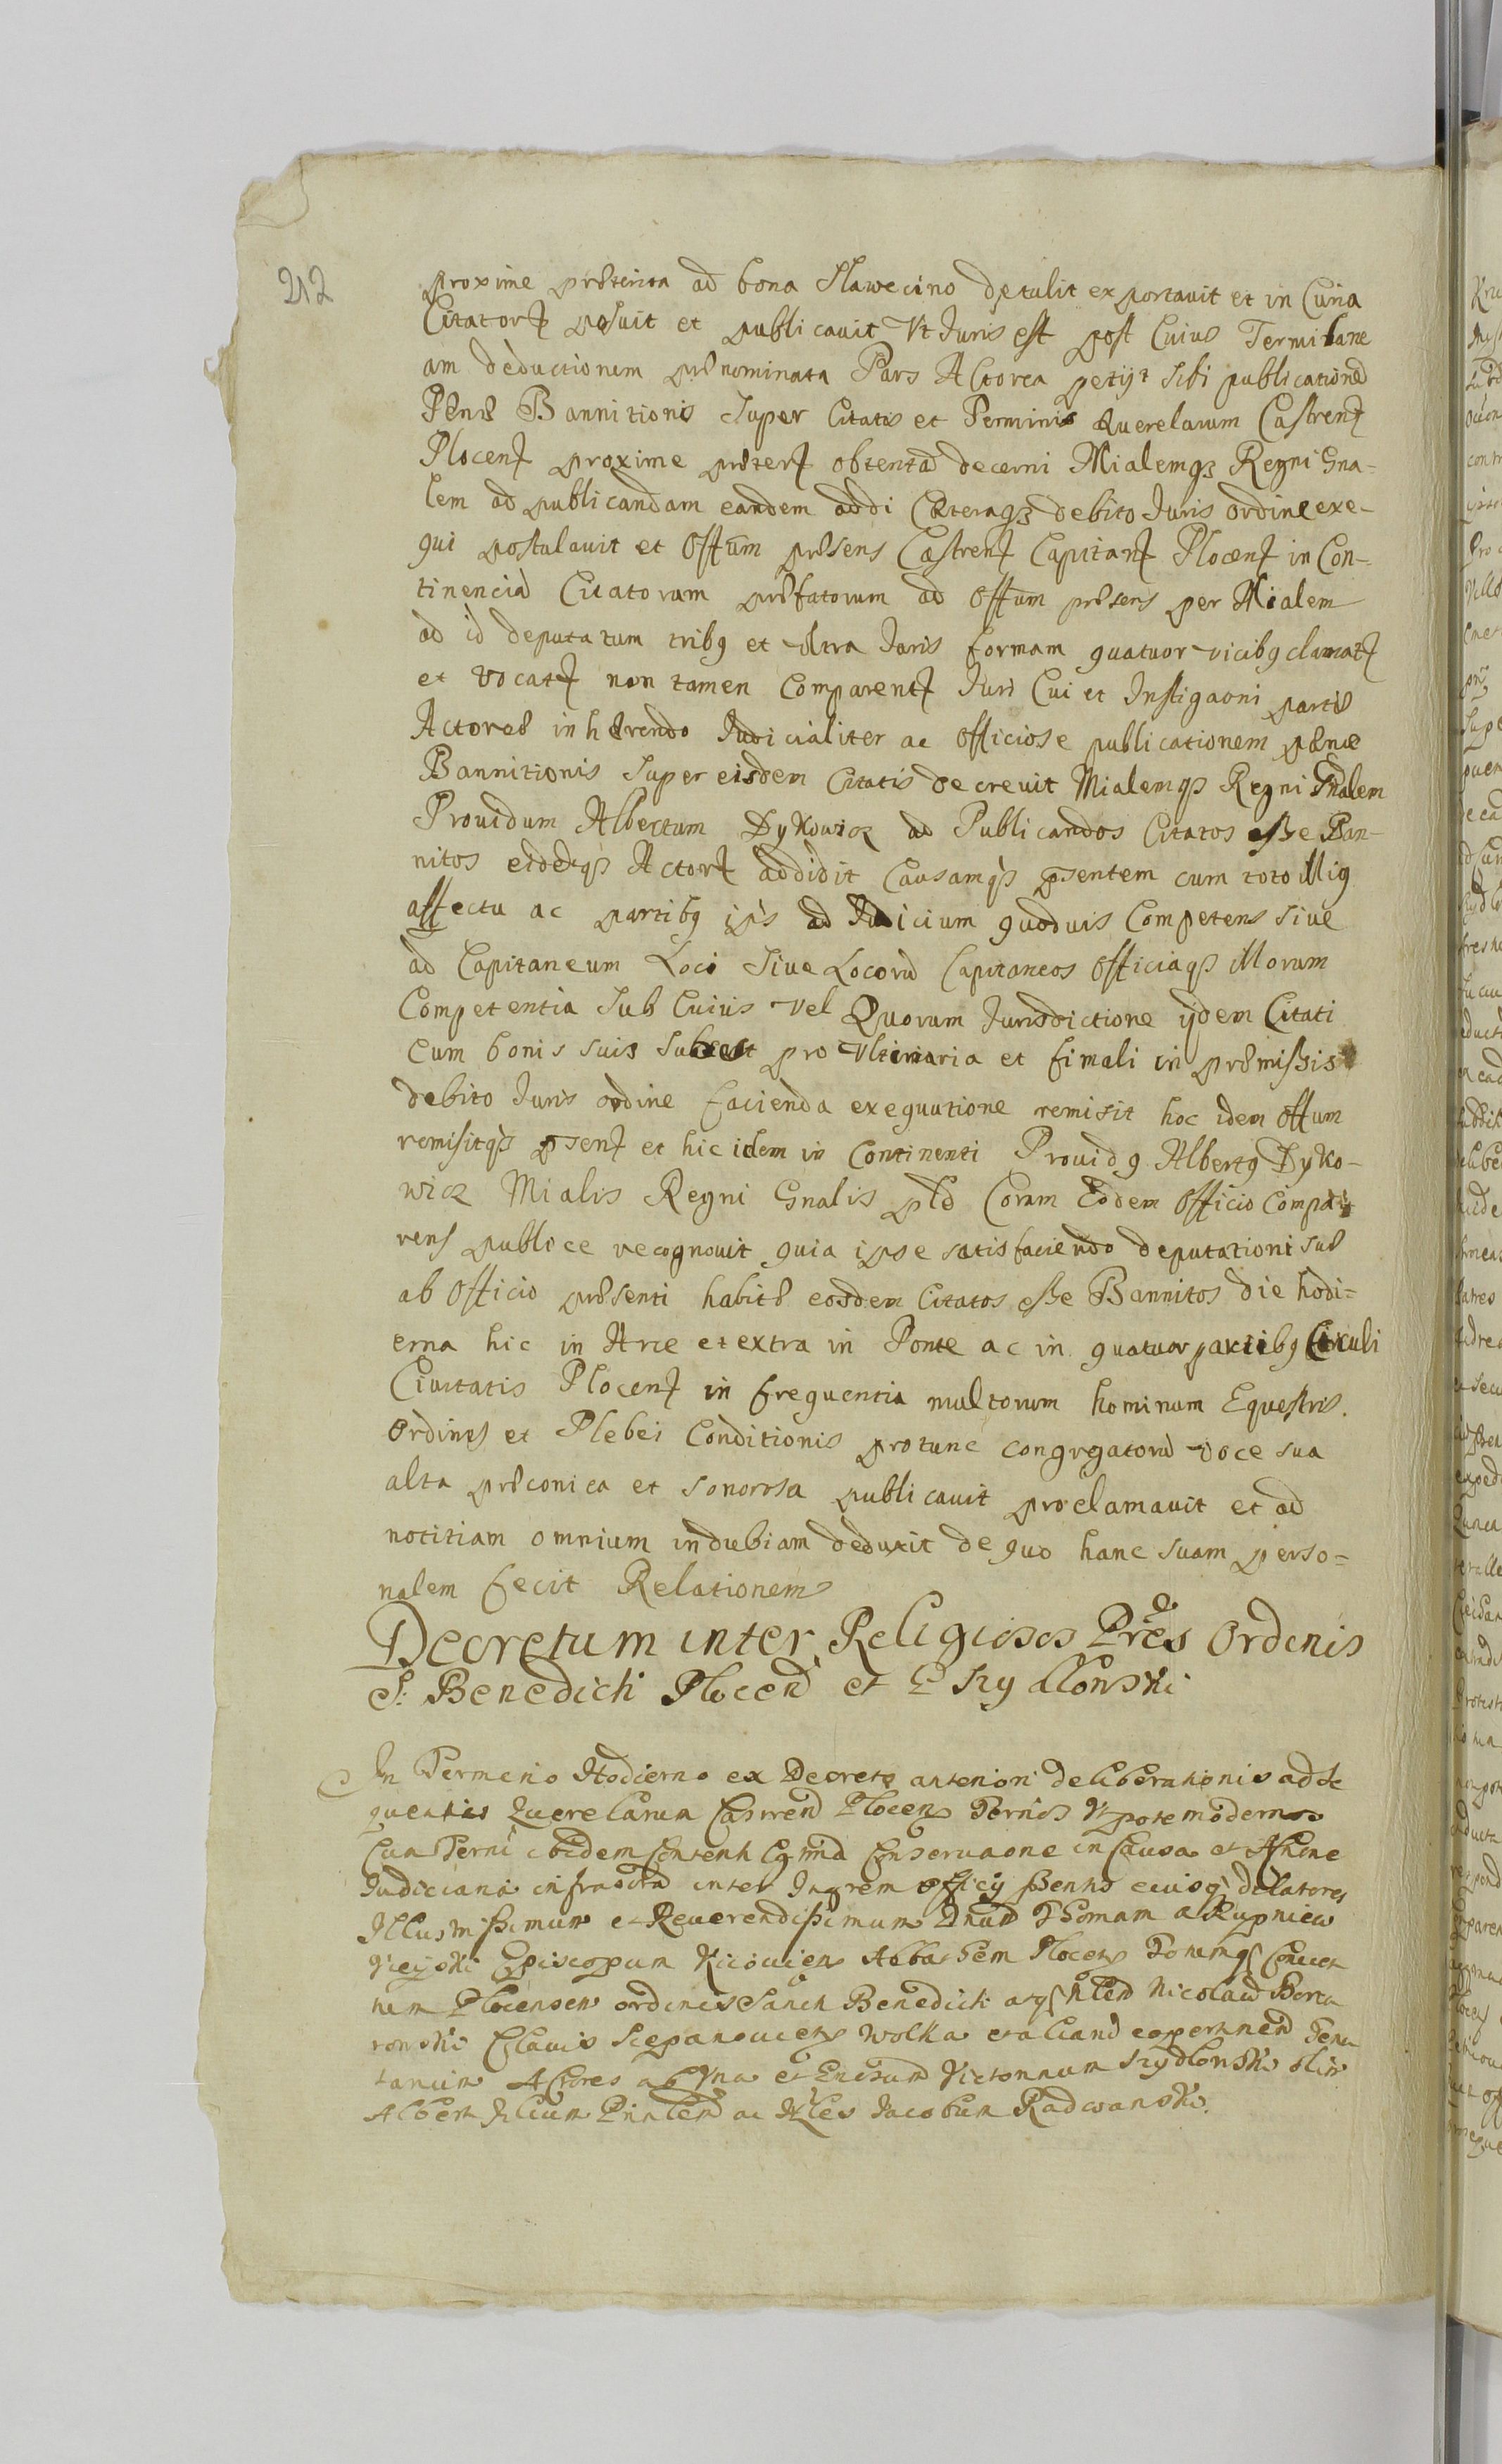 212
proxime præterita ad bona Sławęcino detulit exportavit et in Curia
Citator posuit et publicavit Vt Juris est post Cuius Terministane
am deductionem prænominata Pars Actorea petyt sibi publicationē
Pænæ Bannitionis super Citatis et Terminis Querelarum Castren
Plocen proxime præter obtentā decerni Mialemq Regni Gna-
lem ad publicandam eandem addi Cæteraq debito Juris ordine exe-
qui postulavit et Offūm præsens Castren Capitan Plocen in Con-
tinenciā Citatorum præfatorum ad Offum præsens per Mialem
ad id deputatum tribq et ultra Juris formam quatuor vicibq clamat
et vocat non tamen Comparent Juri Cui et Instigaoni partis
Actoreæ inhærendo Judicialiter ac Officiose publicationem pænæ
Bannitionis super eisdem Citatis decrevit Mialemq Regni Gnalem
Providum Albertum Dykowicz ad Publicandos Citatos esse Ban-
nitos eidemq Actor addidit Causamq psentem cum toto illiq
affectu ac partibq ips ad Judicium quoduis Competens sive
ad Capitaneum Loci sive Locorū Capitaneos Officiaq illorum
Competentia sub Cuius vel Quorum Jurisdictione ijdem Citati
cum bonis suis subest pro Vltimaria et finali in præmissis
debito Juris ordine facienda exequutione remisit hoc idem offum
remisitq psen et hic idem in Continenti Providq Albertq Dyko-
wicz Mialis Regni Gnalis pld Coram Eodem Officio Compa-
rens publice recognovit quia ipse satisfaciendo deputationi suæ
ab Officio præsenti habitæ eosdem Citatos esse Bannitos die hodi-
erna hic in Arce et extra in Ponte ac in quatuor partibq Circuli
Civitatis Plocen in frequentia multorum hominum Equestris
Ordinis et Plebei Conditionis protunc congregatorū voce sua
alta præconica et sonorosa publicavit proclamavit et ad
notitiam omnium indubiam deduxit de quo hanc suam perso-
nalem fecit Relationem
Decretum inter Religiosos Prēs Ordinis
S: Benedicti Plocen et Szydłowski
In Termino Hodierno ex Decreto anteriori deliberationis ad se
quentis Querelarum Castren Plocen Ternis Vtpote modernos
Cum Terni ibidem Content Conservaone in Causa et Actione
Judiciaria infrascra inter Insrem officij eiusq delatores
Illusmissimum et Reverendissimum Dnum Thomam a Rupniew
Episcopum Kijovien Abbatem Plocen Totumq Conven
tum Plocensem ordinis Sancti Benedicti Nicolaum
ronski Clavis Scepanovien Wolka et aliand eo pertinen Tenu
tarium Actores ab Vna et Victorinum Szydłowski olim
Albert filium ac Jacobum Radwanski